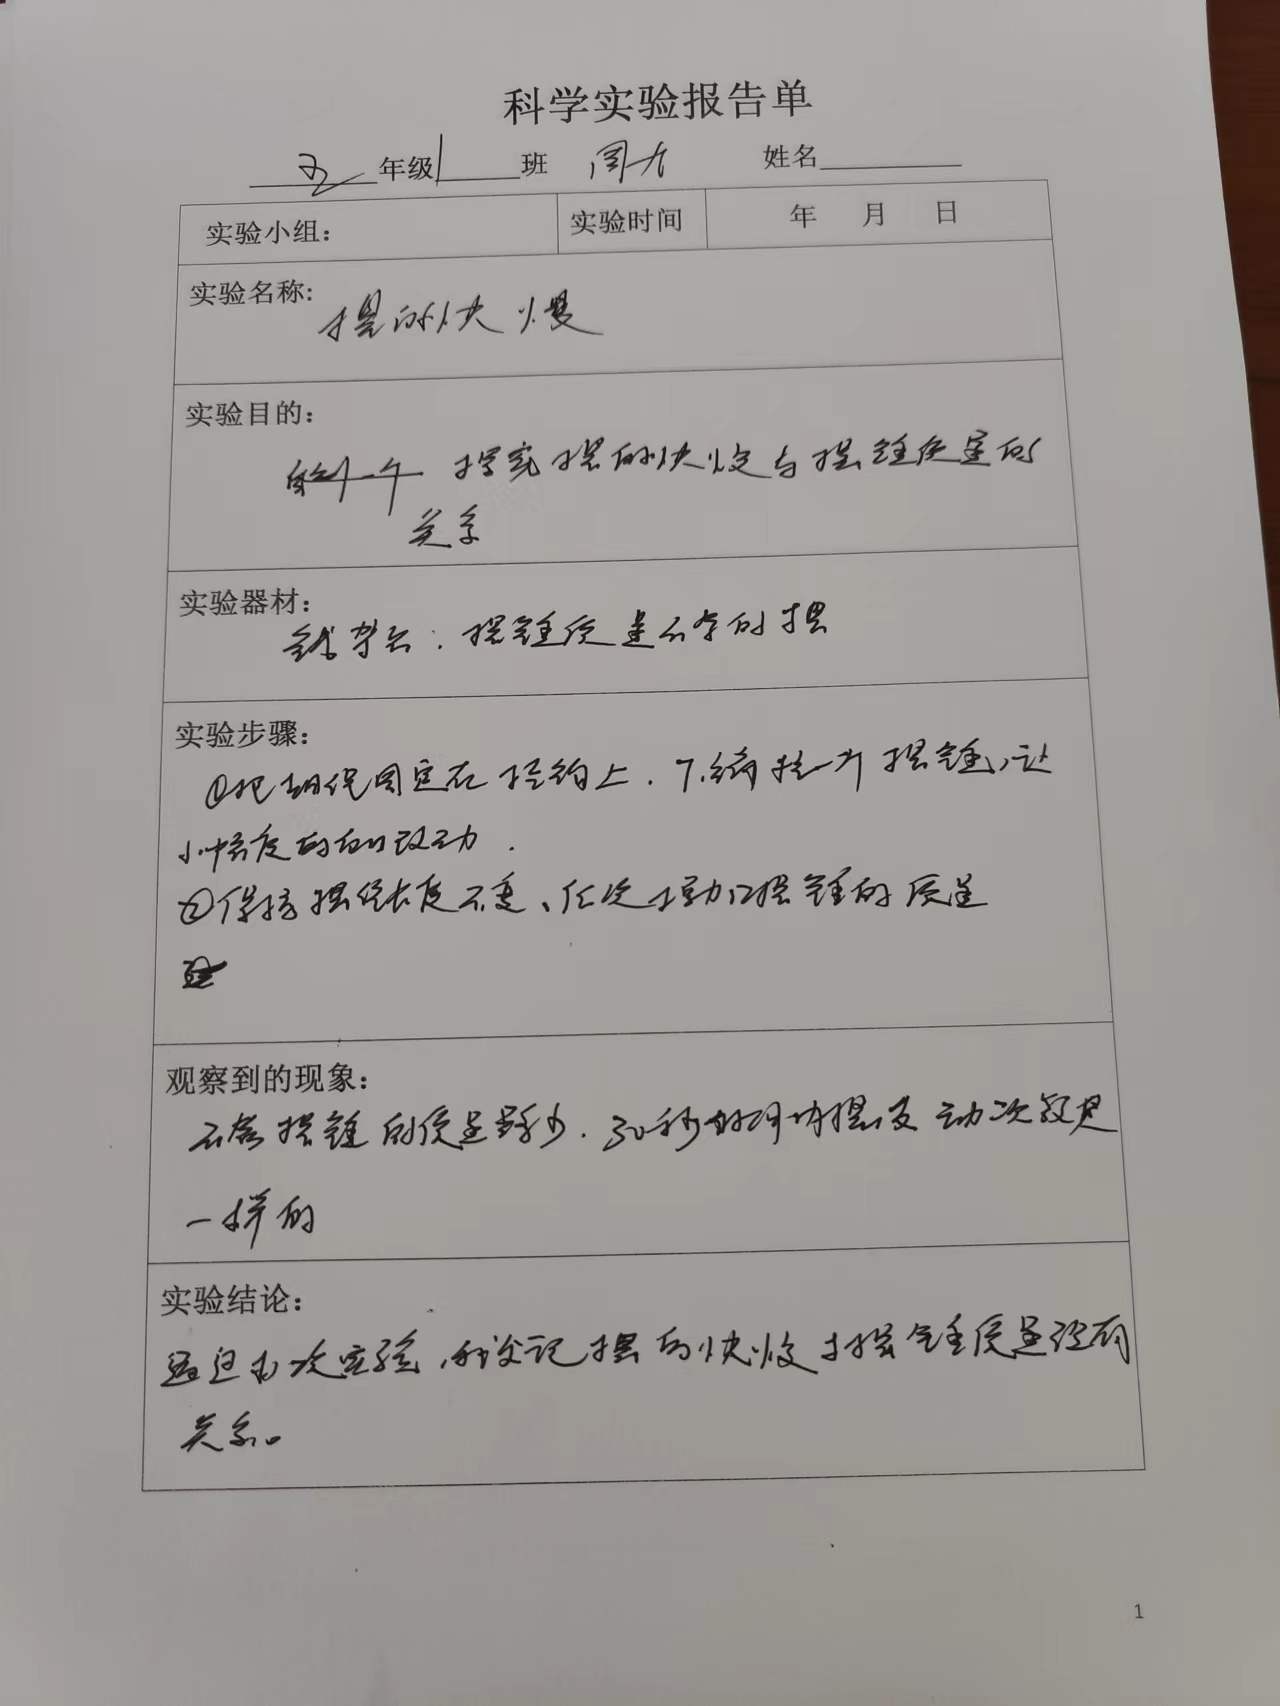 科学实验报告单
五年级1班 周九 姓名
实验小组： 实验时间 年 月 日
实验名称：
摆的快慢
实验目的：
探究摆的快慢与摆锤质量的
关系
实验器材：
铁架台．摆锤质量不同的摆
实验步骤：
①把绳固定在 上．下端挂一个摆锤，让
小幅度的 动．
②保持摆线长度不变、依次增加摆锤的质量
观察到的现象：
不管摆锤的质量多少．30秒时间内摆 动次数是
一样的
实验结论：
通过本次实验，我发现摆的快慢 摆锤质量没有
关系。
1